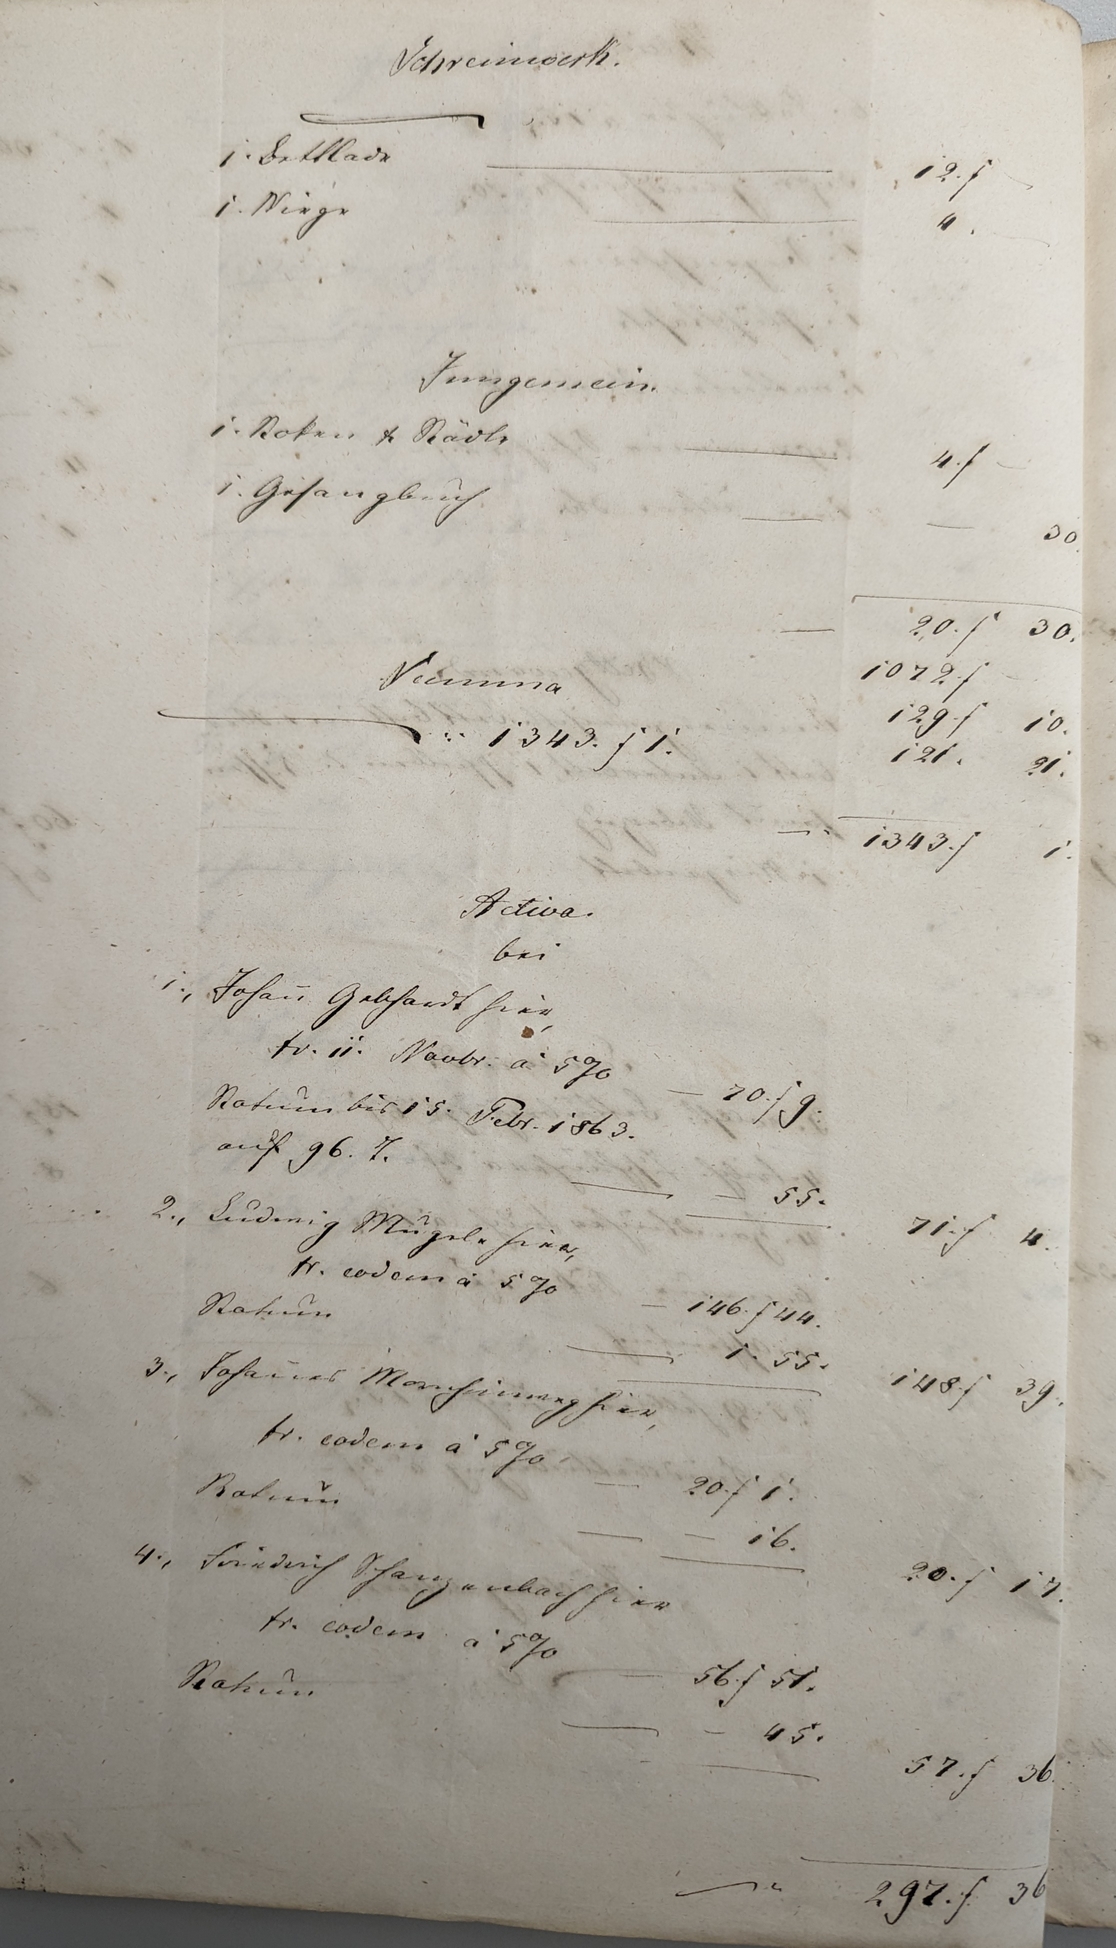 Schreinwerk.
1. Bettlade 12.f —
1. Wiege 4. —
Jnngemein.
1. Roken & Rädle 4.f —
1. Gesangbuch — 30.
20.f 30.
1072.f —
Summa 129.f 10.
1343.f 1. 121. 21.
1343.f 1.
Activa.
bei
1., Johañ Gebhardt hier,
tr. 11. Novbr. à 5%
70.f 9.
Ratum bis 15. Febr. 1863.
auf 96. T.
— 55.
71.f 4.
2., Ludwig Mügele hier,
tr. eodem à 5%
146.f 44.
Ratum
1. 55.
148.f 39.
3., Johannes Mornhinweg hier,
tr. eodem à 5%
20.f 1.
Ratum
— 16.
20.f 17.
4., Friedrich Schanzenbach hier
tr. eodem à 5%
56.f 51.
Ratum
— 45.
57.f 36.
297.f 36